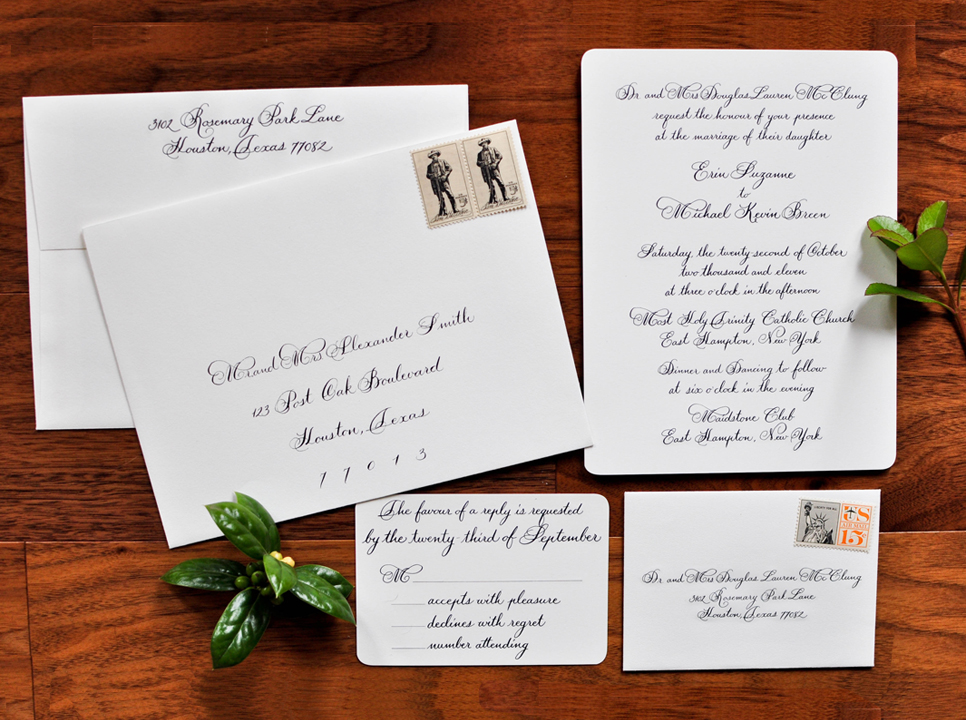 3102 Rosemary Park Lane
Houston, Texas 77082
Mr and Mrs Alexander Smith
123 Post Oak Boulevard
Houston, Texas
77013
Dr and Mrs Douglas Lauren McClung
request the honour of your presence
at the marriage of their daughter
Erin Suzanne
to
Michael Kevin Breen
Saturday, the twenty-second of October
two thousand and eleven
at three o'clock in the afternoon
Most Holy Trinity Catholic Church
East Hampton, New York
Dinner and Dancing to follow
at six o'clock in the evening
Maidstone Club
East Hampton, New York
The favour of a reply is requested
by the twenty-third of September
M
accepts with pleasure
declines with regret
number attending
US
AIR MAIL
15¢
Dr and Mrs Douglas Lauren McClung
3102 Rosemary Park Lane
Houston, Texas 77082